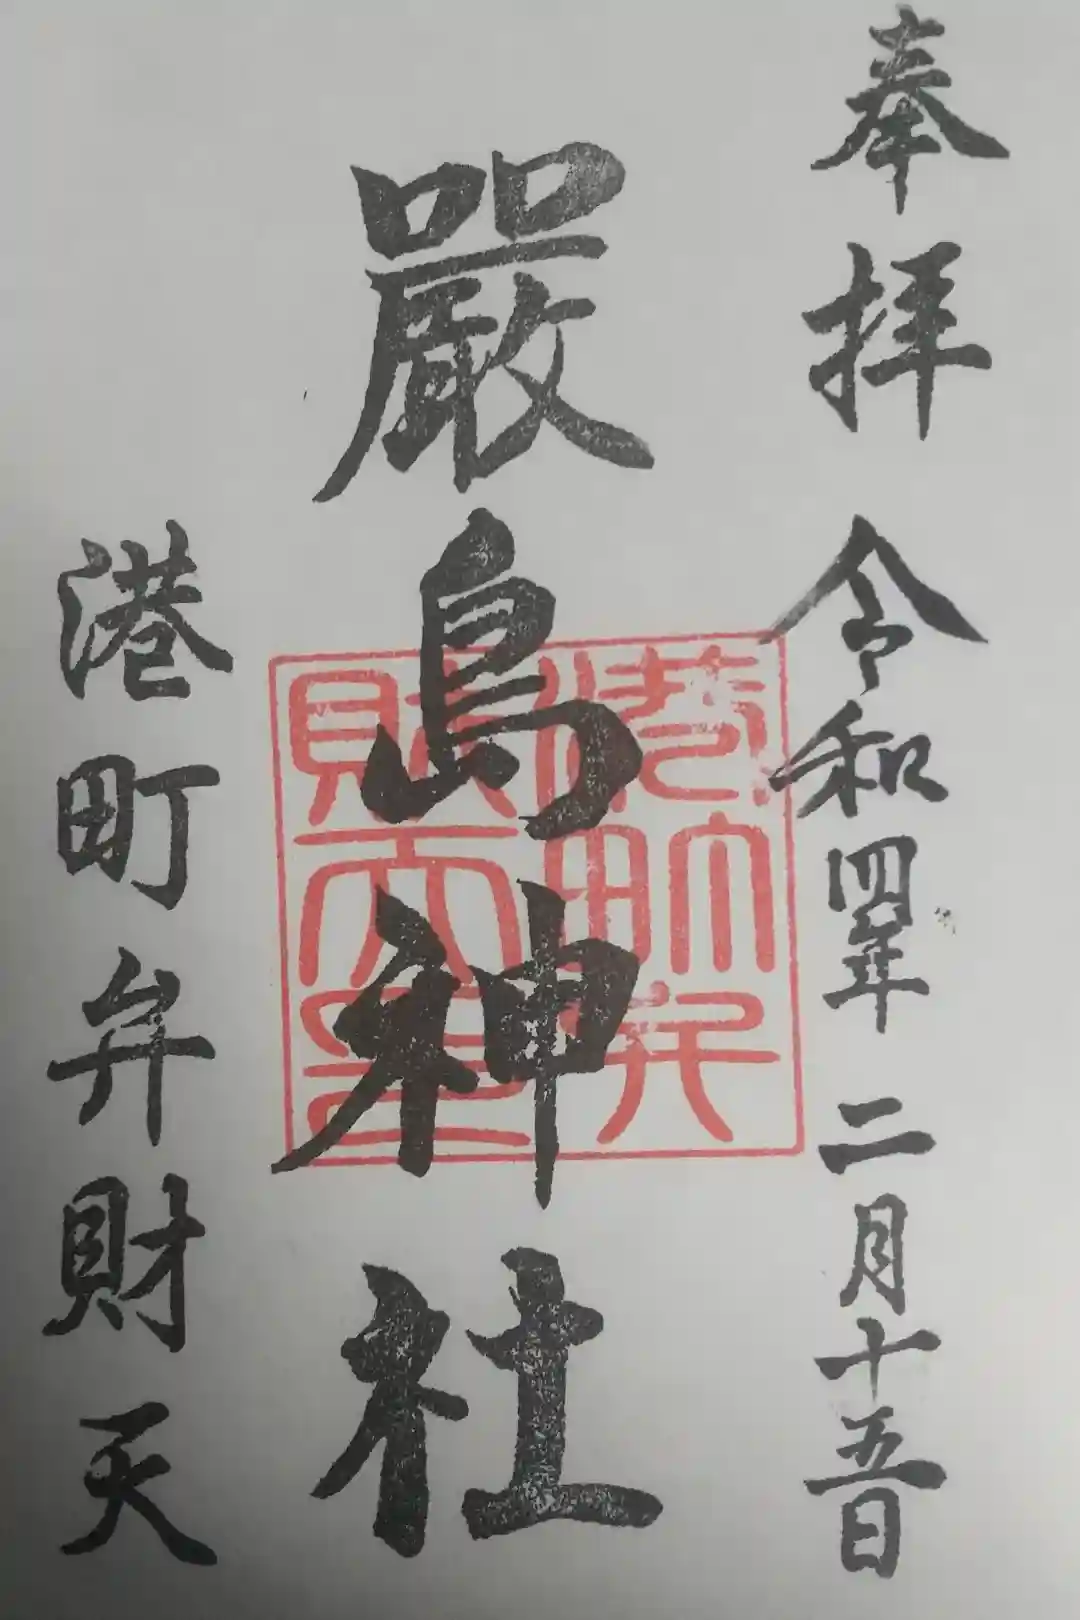 奉拝 令和四年二月十五日
嚴島神社
港町弁財天
港町弁
財天